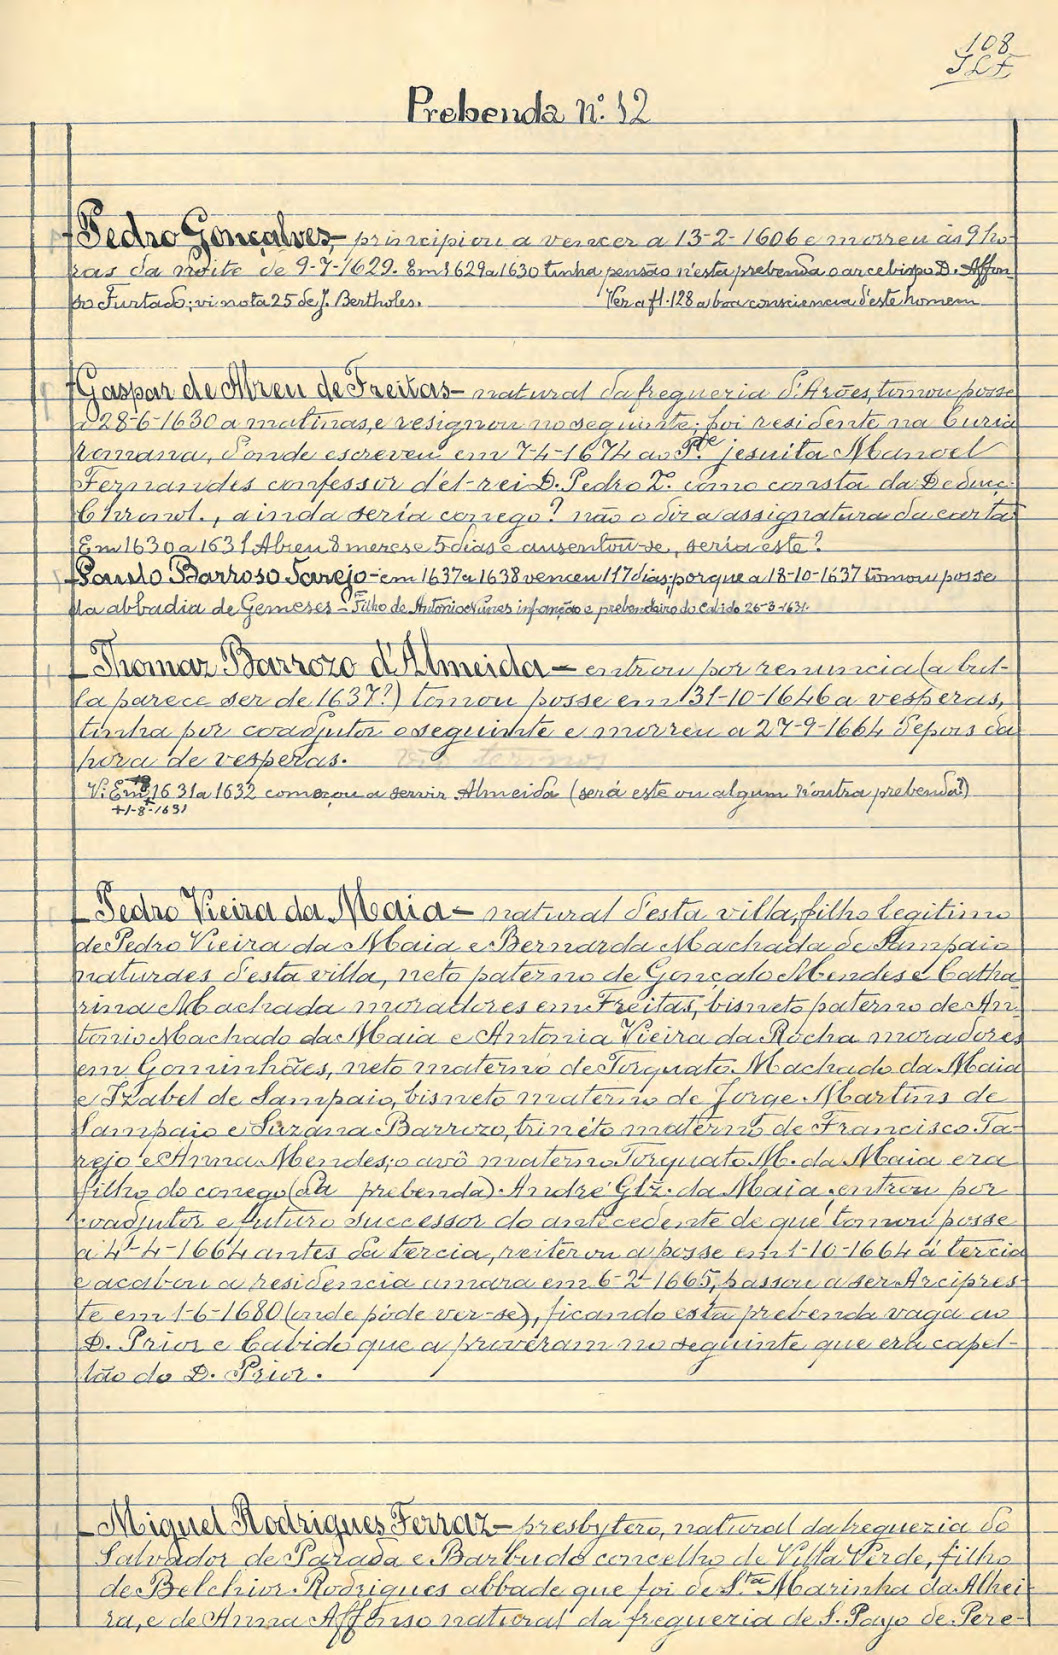 108
Prebenda n.º 12
Pedro Gonçalves,- principiou a vencer a 13-2-1606 e morreu ás 9 ho-
ras da noite de 9-7-1629. Em 1629 a 1630 tinha pensão n'esta prebenda o arcebispo D. Affon-
so Furtado; vi nota 25 de J. Bertholes. Ver a fl. 128 a boa consciencia d'este homem
Gaspar de Abreu de Freitas- natural da freguezia d'Arões, tomou posse
a 28-6-1630 a matinas, e resignou no seguinte; foi residente na Curia
Romana, donde escreveu em 7-4-1674 ao P.de jesuita Manoel
Fernandes confessor d'el-rei D. Pedro 2.º como consta da Deduc.
Chronol., ainda seria conego? não o diz a assignatura da carta
Em 1630 a 1631 Abreu 8 mezes e 5 dias e ausentou-se, seria este?
Paulo Barroso Tarejo- em 1637 a 1638 venceu 117 dias, porque a 18-10-1637 tomou posse
da abbadia de Gemeses - Filho de Antonio Nunes infanção e prebendeiro do Cabido 26-3-1631.
Thomaz Barrozo d'Almeida - entrou por renuncia (a bul-
la parece ser de 1637?) tomou posse em 31-10-1646 a vesperas,
tinha por coadjutor o seguinte e morreu a 27-9-1664 depois da
hora de vesperas.
V. Em 1631 a 1632 começou a servir Almeida (será este ou algum n'outra prebenda?)
+1-8-1631
Pedro Vieira da Maia - natural d'esta villa, filho legitimo
de Pedro Vieira da Maia e Bernarda Machada de Sampaio
naturaes d'esta villa, neto paterno de Gonçalo Mendes e Catha-
rina Machada moradores em Freitas, bisneto paterno de An-
tonio Machado da Maia e Antonia Vieira da Rocha moradores
em Gominhães, neto materno de Torquato Machado da Maia
e Izabel de Sampaio, bisneto materno de Jorge Martins de
Sampaio e Suzana Barrozo, trinéto materno de Francisco Ta-
rejo e Anna Mendes; o avô materno Torquato M. da Maia era
filho do conego (da prebenda) André Glz. da Maia, entrou por
coadjutor e futuro successor do antecedente de que tomou posse
a 4-4-1664 antes da tercia, reiterou a posse em 1-10-1664 á tercia
e acabou a residencia amara em 6-2-1665, passou a ser Arcipres-
te em 1-6-1680 (onde póde ver-se), ficando esta prebenda vaga ao
D. Prior e Cabido que a proveram no seguinte que era capel-
lão do D. Prior.
Miguel Rodrigues Ferraz - presbytero, natural da freguezia do
Salvador de Parada e Barbudo concelho de Villa Verde, filho
de Belchior Rodrigues abbade que foi de S.ta Marinha da Alhei-
ra, e de Anna Affonso natural da freguezia de S. Payo de Pere-